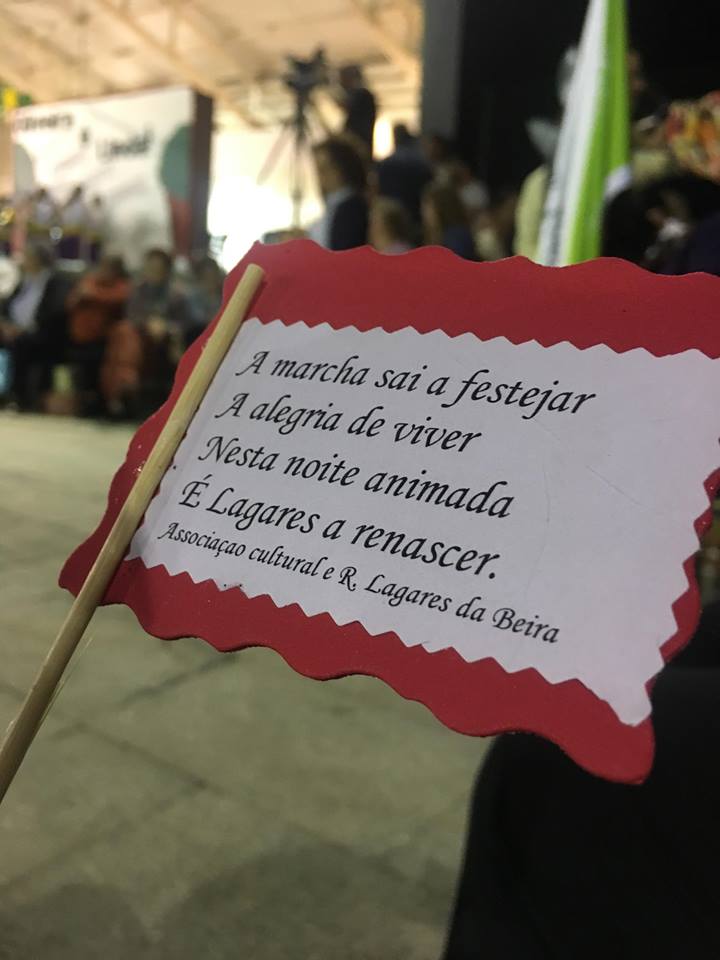 A marcha sai a festejar
A alegria de viver
Nesta noite animada
É Lagares a renascer.
Associaçao cultural e R. Lagares da Beira